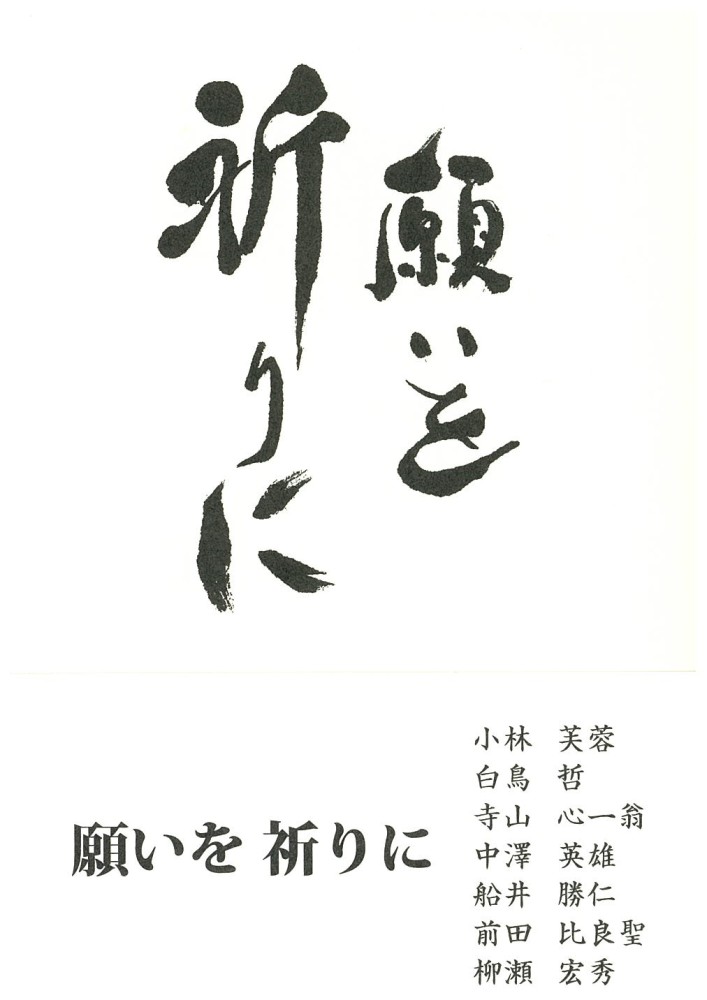 願いを
祈りに
願いを 祈りに
小林 芙蓉
白鳥 哲
寺山 心一翁
中澤 英雄
船井 勝仁
前田 比良聖
柳瀬 宏秀